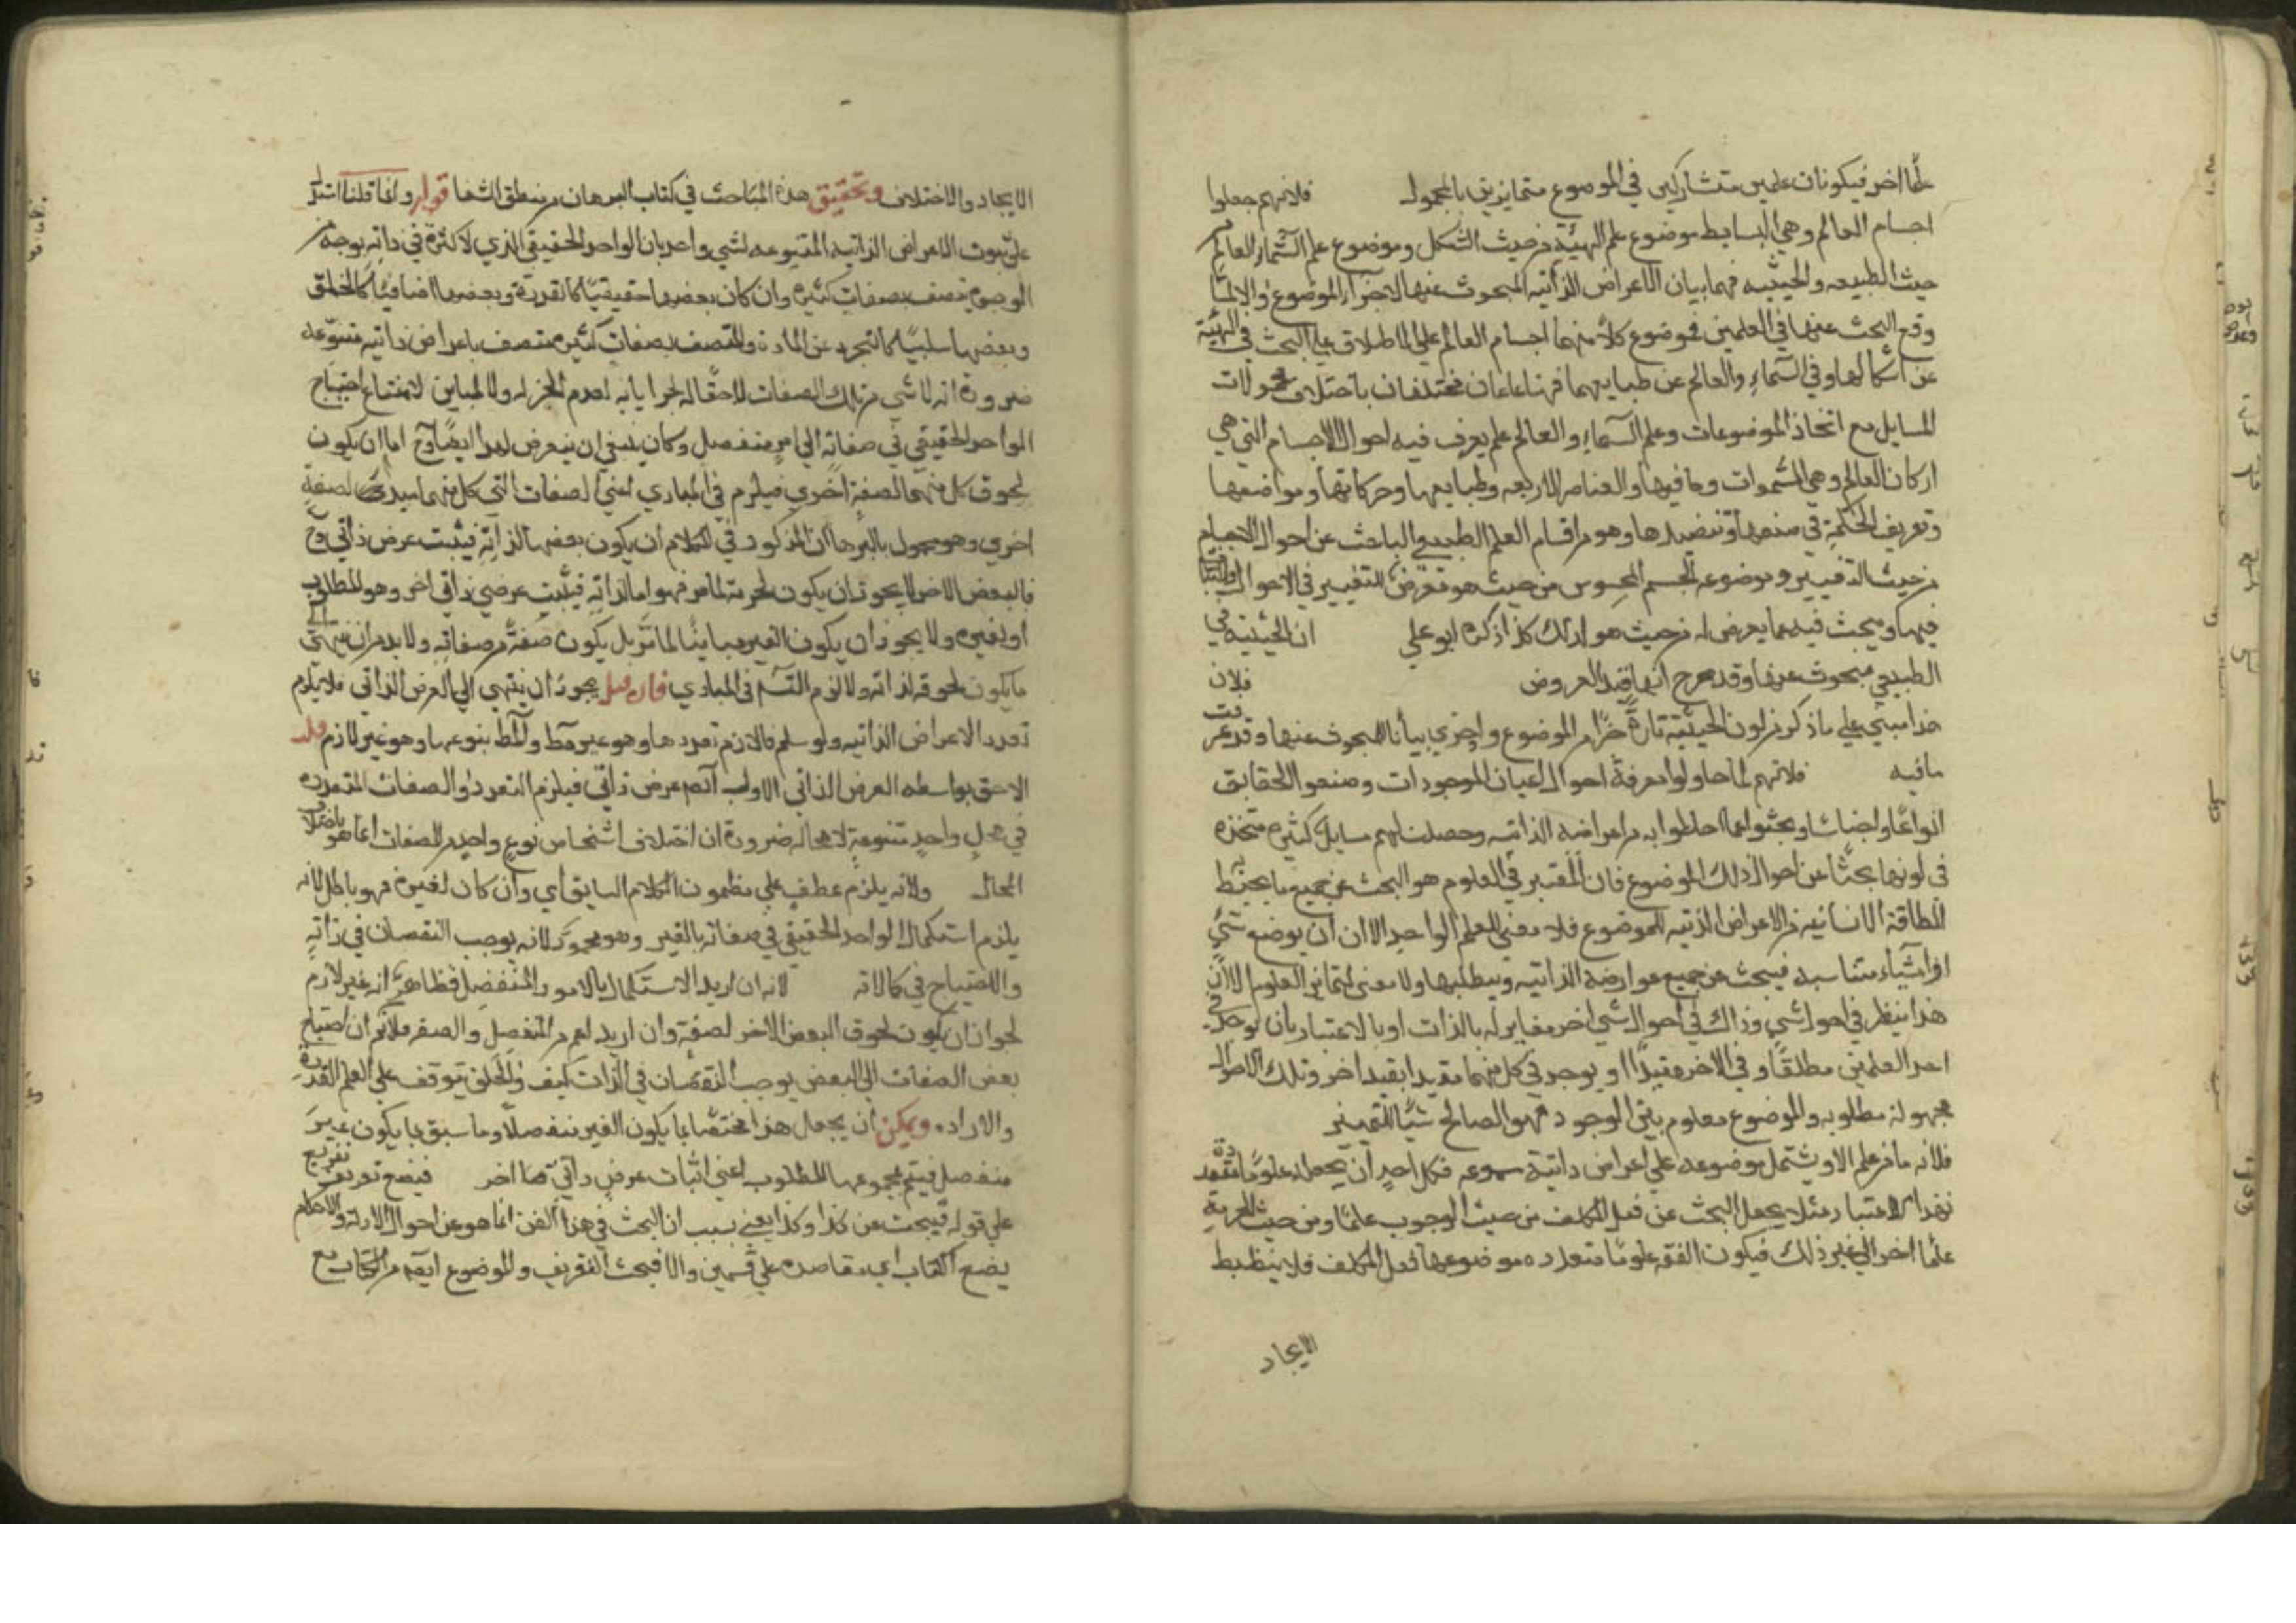 علما اخر فيكونان علمين متشاركين في الموضوع متمايزين بالمحمول فلانهم جعلوا
اجسام العالم وهي البسايط موضوع علم الهيئة من حيث الشكل وموضوع علم السماء والعالم من
حيث الطبيعه والحيثيه فيهما بيان الاعراض الذاتيه المبحوث عنها لا جزء الموضوع والا لما
وقع البحث عنها في العلمين فموضوع كلا منهما اجسام العالم على الاطلاق على البحث في الهيئة
عن اشكالها وفي السماء والعالم عن طبايعهما فهما علمان مختلفان باختلاف محمولات
المسايل مع اتحاد الموضوعات وعلم السماء والعالم علم يعرف فيه احوال الاجسام التي هي
اركان العالم وهي السموات وما فيها والعناصر الاربعه وطبايعها وحركاتها ومواضعها
وتعريف الحكمة في صنعها وتنضيدها وهو من اقسام العلم الطبيعي الباحث عن احوال الاجسام
من حيث التغيير وموضوعه الجسم المحسوس من حيث هو معرض للتغيير في الاحوال والثبات
فيها ويبحث فيه عما يعرض له من حيث هو كذلك كذا ذكره ابو علي ان الحيثية في
الطبيعي مبحوث عنها وقد صرح انها قيد العروض فلان
هذا مبني على ما ذكر من كون الحيثية تارة جزءا من الموضوع واخرى بيانا للمبحوث عنها وقد عرفت
ما فيه فلانهم لما حاولوا معرفة احوال اعيان الموجودات وضعوا الحقايق
انواعا واجناسا وبحثوا عما احاطوا به من اعراضه الذاتيه وحصلت لهم مسايل كثيره متحده
في كونها بحثا عن احوال ذلك الموضوع فان المعتبر في العلوم هو البحث عن جميع ما يحيط
الطاقة الانسانيه من الاعراض الذتيه للموضوع فلا معنى للعلم الواحد الا ان يوضع شيء
او اشياء متناسبه فيبحث عن جميع عوارضه الذاتيه ويطلبها ولا معنى لتمايز العلوم الا ان
هذا ينظر في احوال شي وذاك في احوال شي اخر مغاير له بالذات او بالاعتبار بان يوجد في
احد العلمين مطلقا وفي الاخر مقيدا او يوجد في كل منهما مقيدا بقيد اخر وتلك الاحوال
مجهولة مطلوبه والموضوع معلوم بين الوجود فهو الصالح سببا للتميز
فلانه ما من علم الا ويشتمل موضوعه على اعراض ذاتية متنوعه فلكل احد ان يجعله علوما متعددة
بهذا الاعتبار مثلا يجعل البحث عن فعل المكلف من حيث الوجوب علما ومن حيث الحرمة
علما اخر الى غير ذلك فيكون الفقه علوما متعدده موضوعها فعل المكلف فلا ينضبط
الايجاد
الايجاد والاختلاف وتحقيق هذه المباحث في كتاب البرهان من منطق الشفا قوله وانما قلنا استدل
على ثبوت الاعراض الذاتيه المتنوعه لشي واحد بان الواحد الحقيقي الذي لا كثرة في ذاته بوجه من
الوجوه يتصف بصفات كثيره وان كان بعضها حقيقيا كالقدرة وبعضها اضافيا كالخلق
وبعضها سلبيا كالتجرد عن المادة والمتصف بصفات كثيره متصف باعراض ذاتيه متنوعه
ضرورة انه لا شي من تلك الصفات لاحقا له لجزءيه لعدم الجزء له ولا لمباين لامتناع احتياج
الواحد الحقيقي في صفاته الى امر منفصل وكان ينبغي ان يتعرض لهذا ايضا وح اما ان يكون
لحوق كل منها لصفة اخرى فيلزم في المبادي اعني الصفات التي كل منها مبدء لصفة
اخري وهو محمول بالبرهان المذكور في الكلام ان يكون بعضها لذاته فيثبت عرض ذاتي وح
فالبعض الاخر لا يجوز ان يكون لجزئه لما مر فهو اما لذاته فيثبت عرضي ذاتي اخر وهو المطلوب
او لغيره ولا يجوز ان يكون الغير مباينا لما مر بل يكون صفة من صفاته ولا بد من ان ينتهي الى
ما يكون لحوقه لذاته ولا لزم التس في المبادي فان قيل يجوز ان ينتهي الى العرض الذاتي فلا يلزم
تعدد الاعراض الذاتيه ولو سلم فاللازم تعددها وهو غير مط والمط تنوعها وهو غير لازم قلت
اللاحق بواسطه العرض الذاتي الاولي ايضا عرض ذاتي فيلزم التعدد والصفات المتعدده
في محل واحد متنوعة لا محاله ضرورة ان اختلاف اشخاص نوع واحد من الصفات انما هو باختلاف
المحال ولانه يلزم عطف على مضمون الكلام السابق اي وان كان لغيره فهو باطل لانه
يلزم استكمال الواحد الحقيقي في صفاته بالغير وهو مح لانه يوجب النقصان في ذاته
والاحتياج في كمالاته لانه ان اريد الاستكمال بالامور المنفصل فظاهر انه غير لازم
لجواز ان يكون لحوق البعض الاخر لصفة وان اريد اعم من المنفصل والصفه فلا نم ان احتياج
بعض الصفات الى البعض يوجب النقصان في الذات كيف والخلق يتوقف على العلم والقدرة
والاراده ويمكن ان يجعل هذا مختصا بما يكون الغير منفصلا وما سبق بما يكون غير
منفصل فيتم بمجموعها المطلوب اعني اثبات عرض ذاتي اخر فيضع تعريف تفريع
على قوله فيبحث عن كذا وكذا يعني بسبب ان البحث في هذا الفن انما هو عن احوال الادله والاحكام
يضع الكتاب اي مقاصده على قسمين والا فبحث التعريف والموضوع ايضا من الكتاب مع